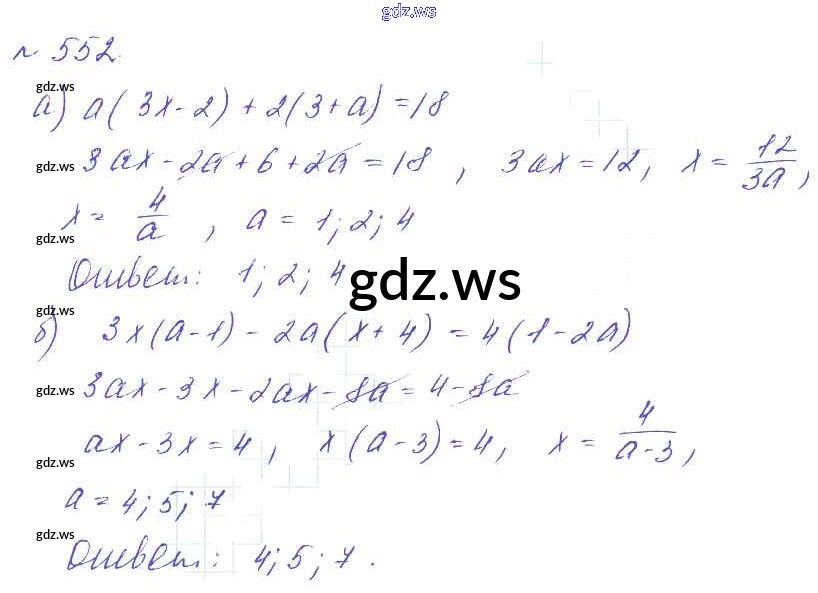 gdz.ws
№ 552.
gdz.ws
а) a(3x-2)+2(3+a)=18
gdz.ws 3ax-2a+6+2a=18, 3ax=12, x=12/3a,
x=4/a, a=1;2;4
gdz.ws
Ответ: 1; 2; 4
gdz.ws
gdz.ws
б) 3x(a-1)-2a(x+4)=4(1-2a)
gdz.ws 3ax-3x-2ax-8a=4-8a
ax-3x=4, x(a-3)=4, x=4/a-3,
gdz.ws
a=4;5;7
gdz.ws
Ответ: 4;5;7.